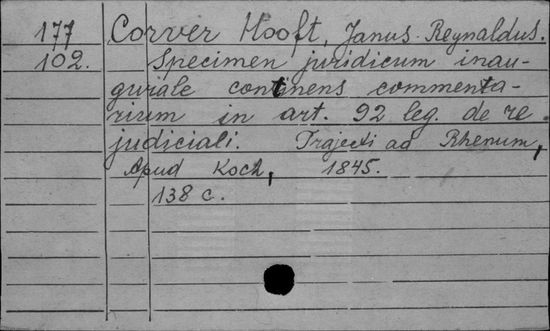 177 Corver Hooft, Janus Reynaldus.
102. Specimen juridicum inau-
gurale continens commenta-
rium in art. 92 leg. de re
judiciali. Trajecti ad Rhenum,
apud Koch, 1845.
138 c.